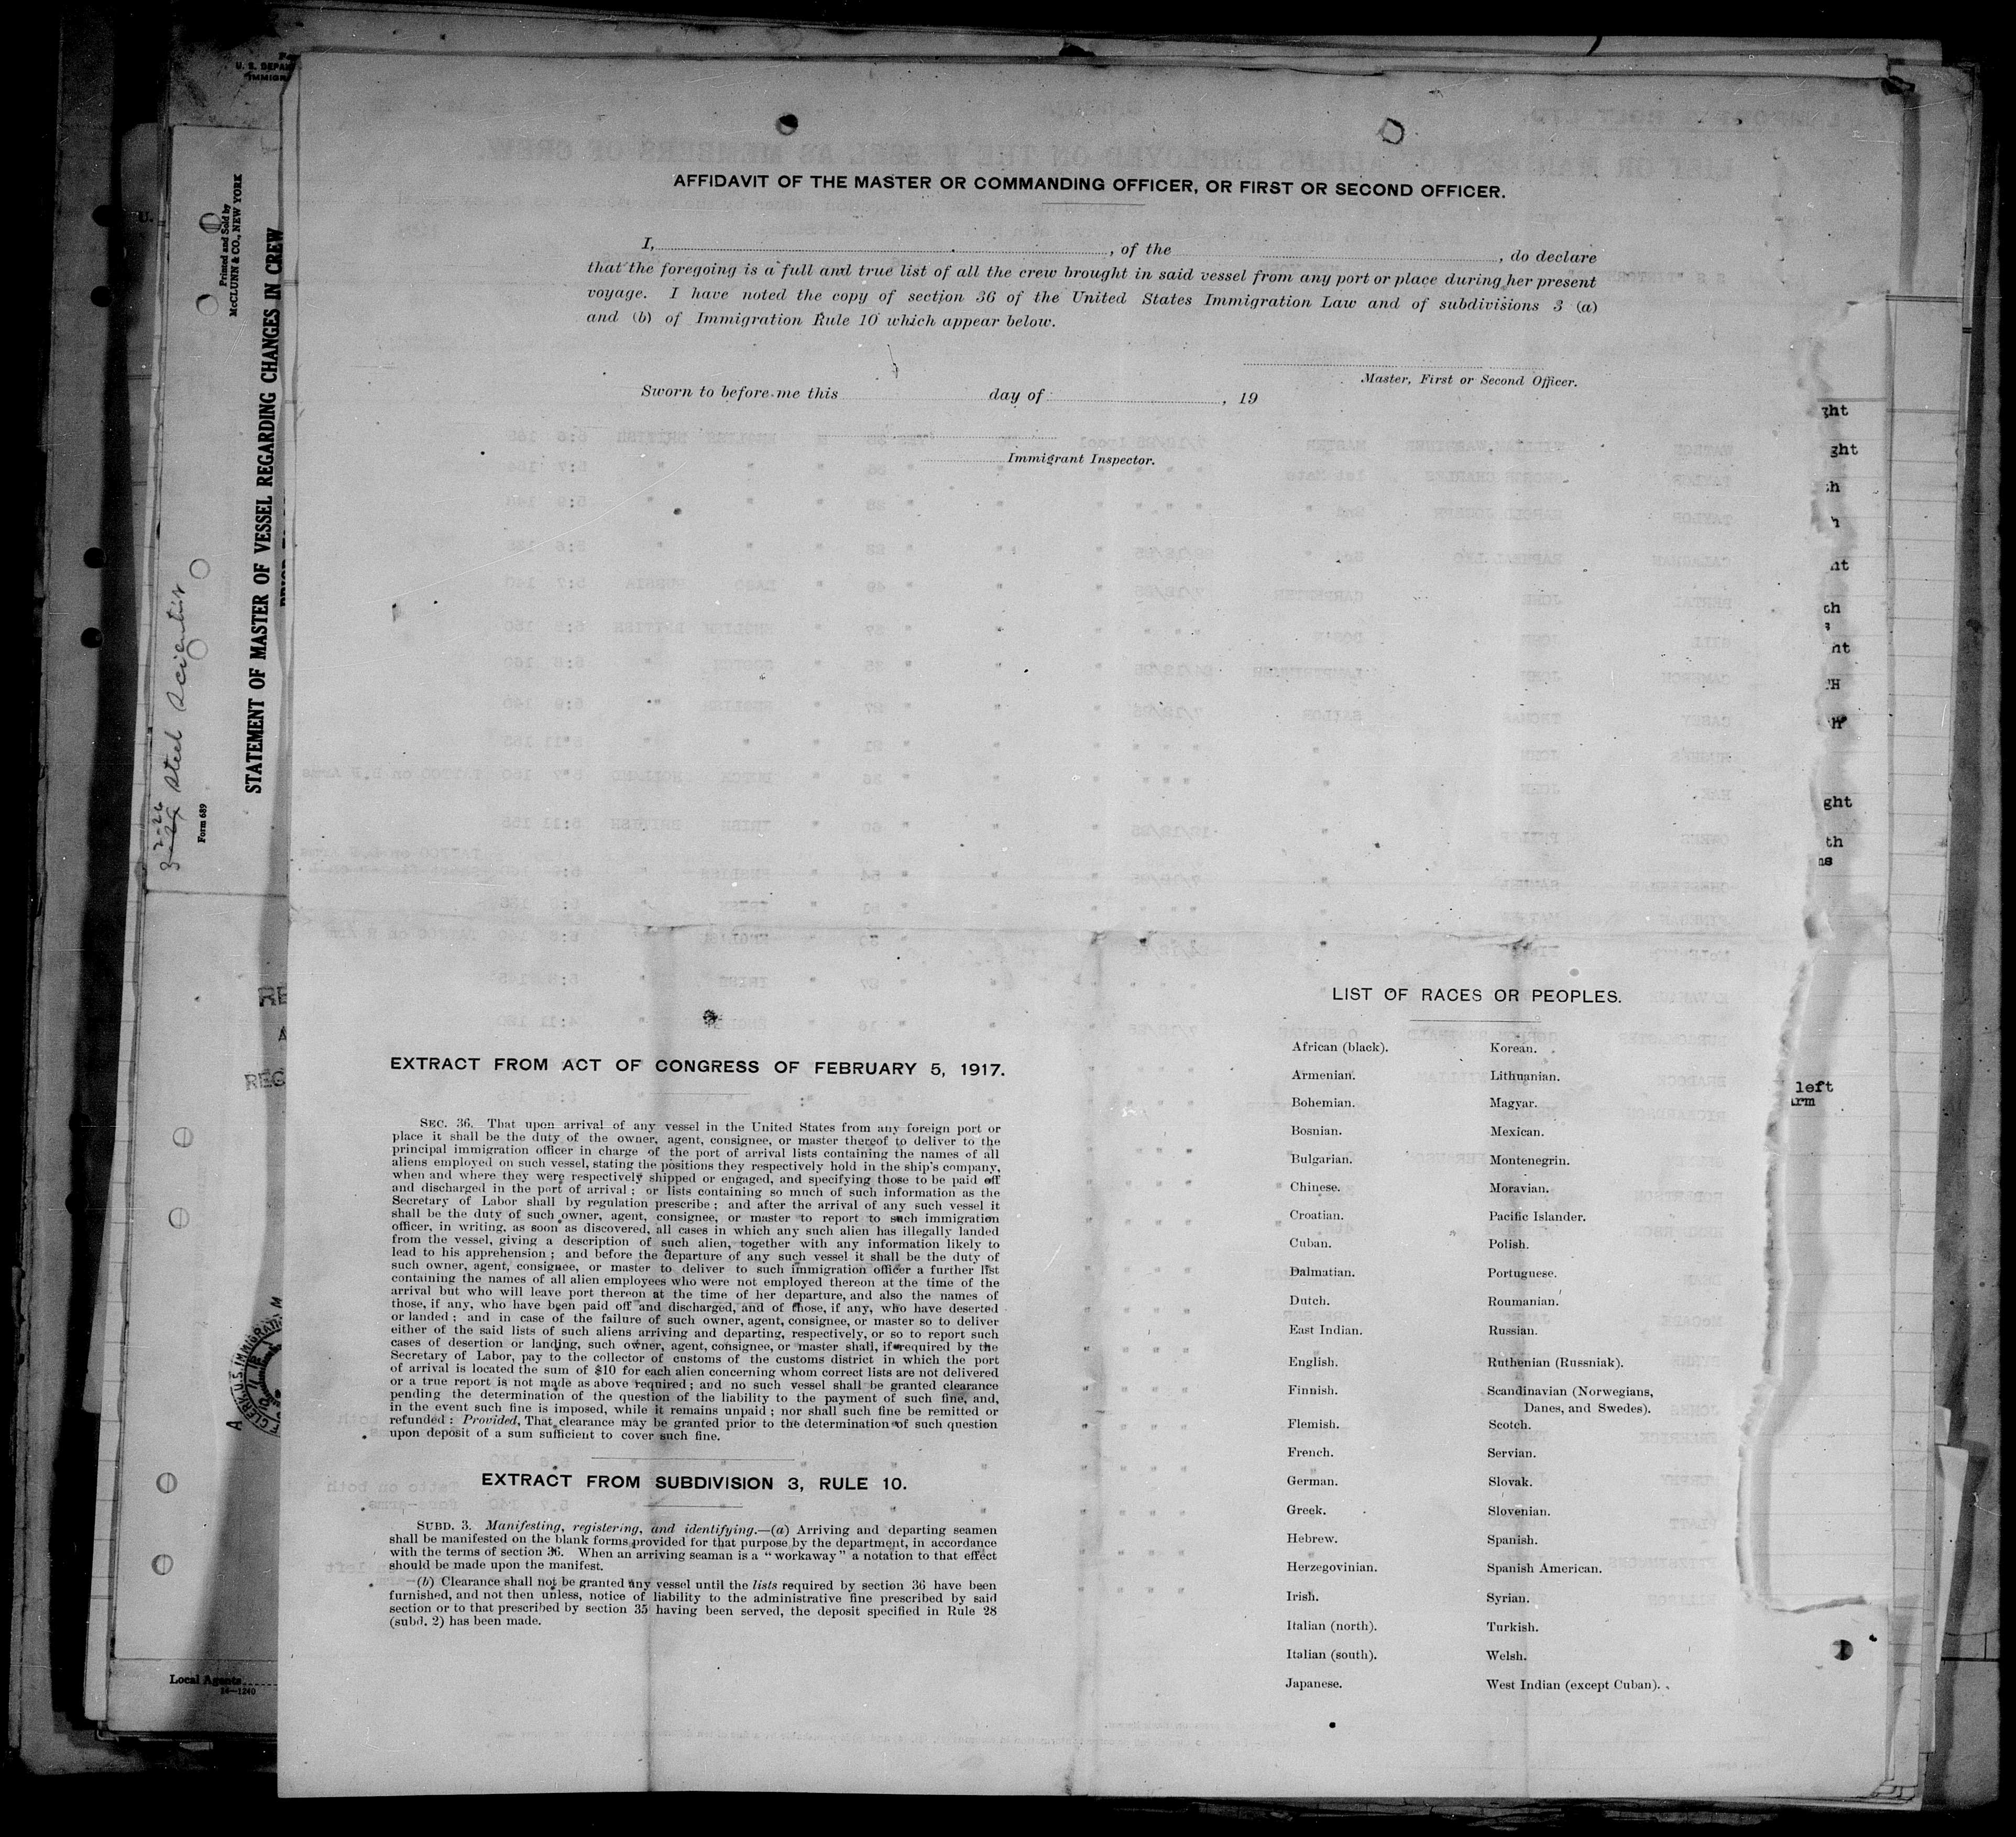 AFFIDAVIT OF THE MASTER OR COMMANDING OFFICER, OR FIRST OR SECOND OFFICER.
I, , of the , do declare
that the foregoing is a full and true list of all the crew brought in said vessel from any port or place during her present
voyage. I have noted the copy of section 36 of the United States Immigration Law and of subdivisions 3 (a)
and (b) of Immigration Rule 10 which appear below.
Master, First or Second Officer.
Sworn to before me this day of , 19
Immigrant Inspector.
EXTRACT FROM ACT OF CONGRESS OF FEBRUARY 5, 1917.
SEC. 36. That upon arrival of any vessel in the United States from any foreign port or
place it shall be the duty of the owner, agent, consignee, or master thereof to deliver to the
principal immigration officer in charge of the port of arrival lists containing the names of all
aliens employed on such vessel, stating the positions they respectively hold in the ship's company,
when and where they were respectively shipped or engaged, and specifying those to be paid off
and discharged in the port of arrival; or lists containing so much of such information as the
Secretary of Labor shall by regulation prescribe; and after the arrival of any such vessel it
shall be the duty of such owner, agent, consignee, or master to report to such immigration
officer, in writing, as soon as discovered, all cases in which any such alien has illegally landed
from the vessel, giving a description of such alien, together with any information likely to
lead to his apprehension; and before the departure of any such vessel it shall be the duty of
such owner, agent, consignee, or master to deliver to such immigration officer a further list
containing the names of all alien employees who were not employed thereon at the time of the
arrival but who will leave port thereon at the time of her departure, and also the names of
those, if any, who have been paid off and discharged, and of those, if any, who have deserted
or landed; and in case of the failure of such owner, agent, consignee, or master so to deliver
either of the said lists of such aliens arriving and departing, respectively, or so to report such
cases of desertion or landing, such owner, agent, consignee, or master shall, if required by the
Secretary of Labor, pay to the collector of customs of the customs district in which the port
of arrival is located the sum of $10 for each alien concerning whom correct lists are not delivered
or a true report is not made as above required; and no such vessel shall be granted clearance
pending the determination of the question of the liability to the payment of such fine, and,
in the event such fine is imposed, while it remains unpaid; nor shall such fine be remitted or
refunded: Provided, That clearance may be granted prior to the determination of such question
upon deposit of a sum sufficient to cover such fine.
EXTRACT FROM SUBDIVISION 3, RULE 10.
SUBD. 3. Manifesting, registering, and identifying.—(a) Arriving and departing seamen
shall be manifested on the blank forms provided for that purpose by the department, in accordance
with the terms of section 36. When an arriving seaman is a "workaway" a notation to that effect
should be made upon the manifest.
(b) Clearance shall not be granted any vessel until the lists required by section 36 have been
furnished, and not then unless, notice of liability to the administrative fine prescribed by said
section or to that prescribed by section 35 having been served, the deposit specified in Rule 28
(subd. 2) has been made.
LIST OF RACES OR PEOPLES.
African (black).
Armenian.
Bohemian.
Bosnian.
Bulgarian.
Chinese.
Croatian.
Cuban.
Dalmatian.
Dutch.
East Indian.
English.
Finnish.
Flemish.
French.
German.
Greek.
Hebrew.
Herzegovinian.
Irish.
Italian (north).
Italian (south).
Japanese.
Korean.
Lithuanian.
Magyar.
Mexican.
Montenegrin.
Moravian.
Pacific Islander.
Polish.
Portuguese.
Roumanian.
Russian.
Ruthenian (Russniak).
Scandinavian (Norwegians,
Danes, and Swedes).
Scotch.
Servian.
Slovak.
Slovenian.
Spanish.
Spanish American.
Syrian.
Turkish.
Welsh.
West Indian (except Cuban).
left
Printed and Sold by
McCLUNN & CO., NEW YORK
STATEMENT OF MASTER OF VESSEL REGARDING CHANGES IN CREW
Form 689
Steel Scientist
Local Agents
14—1240